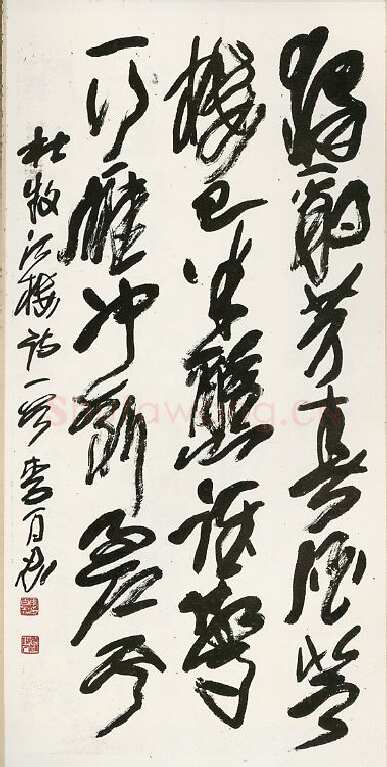 独酌芳春酒登
樓已半醺誰驚
一行雁冲斷過江云
杜牧江樓詩一首 李百忍